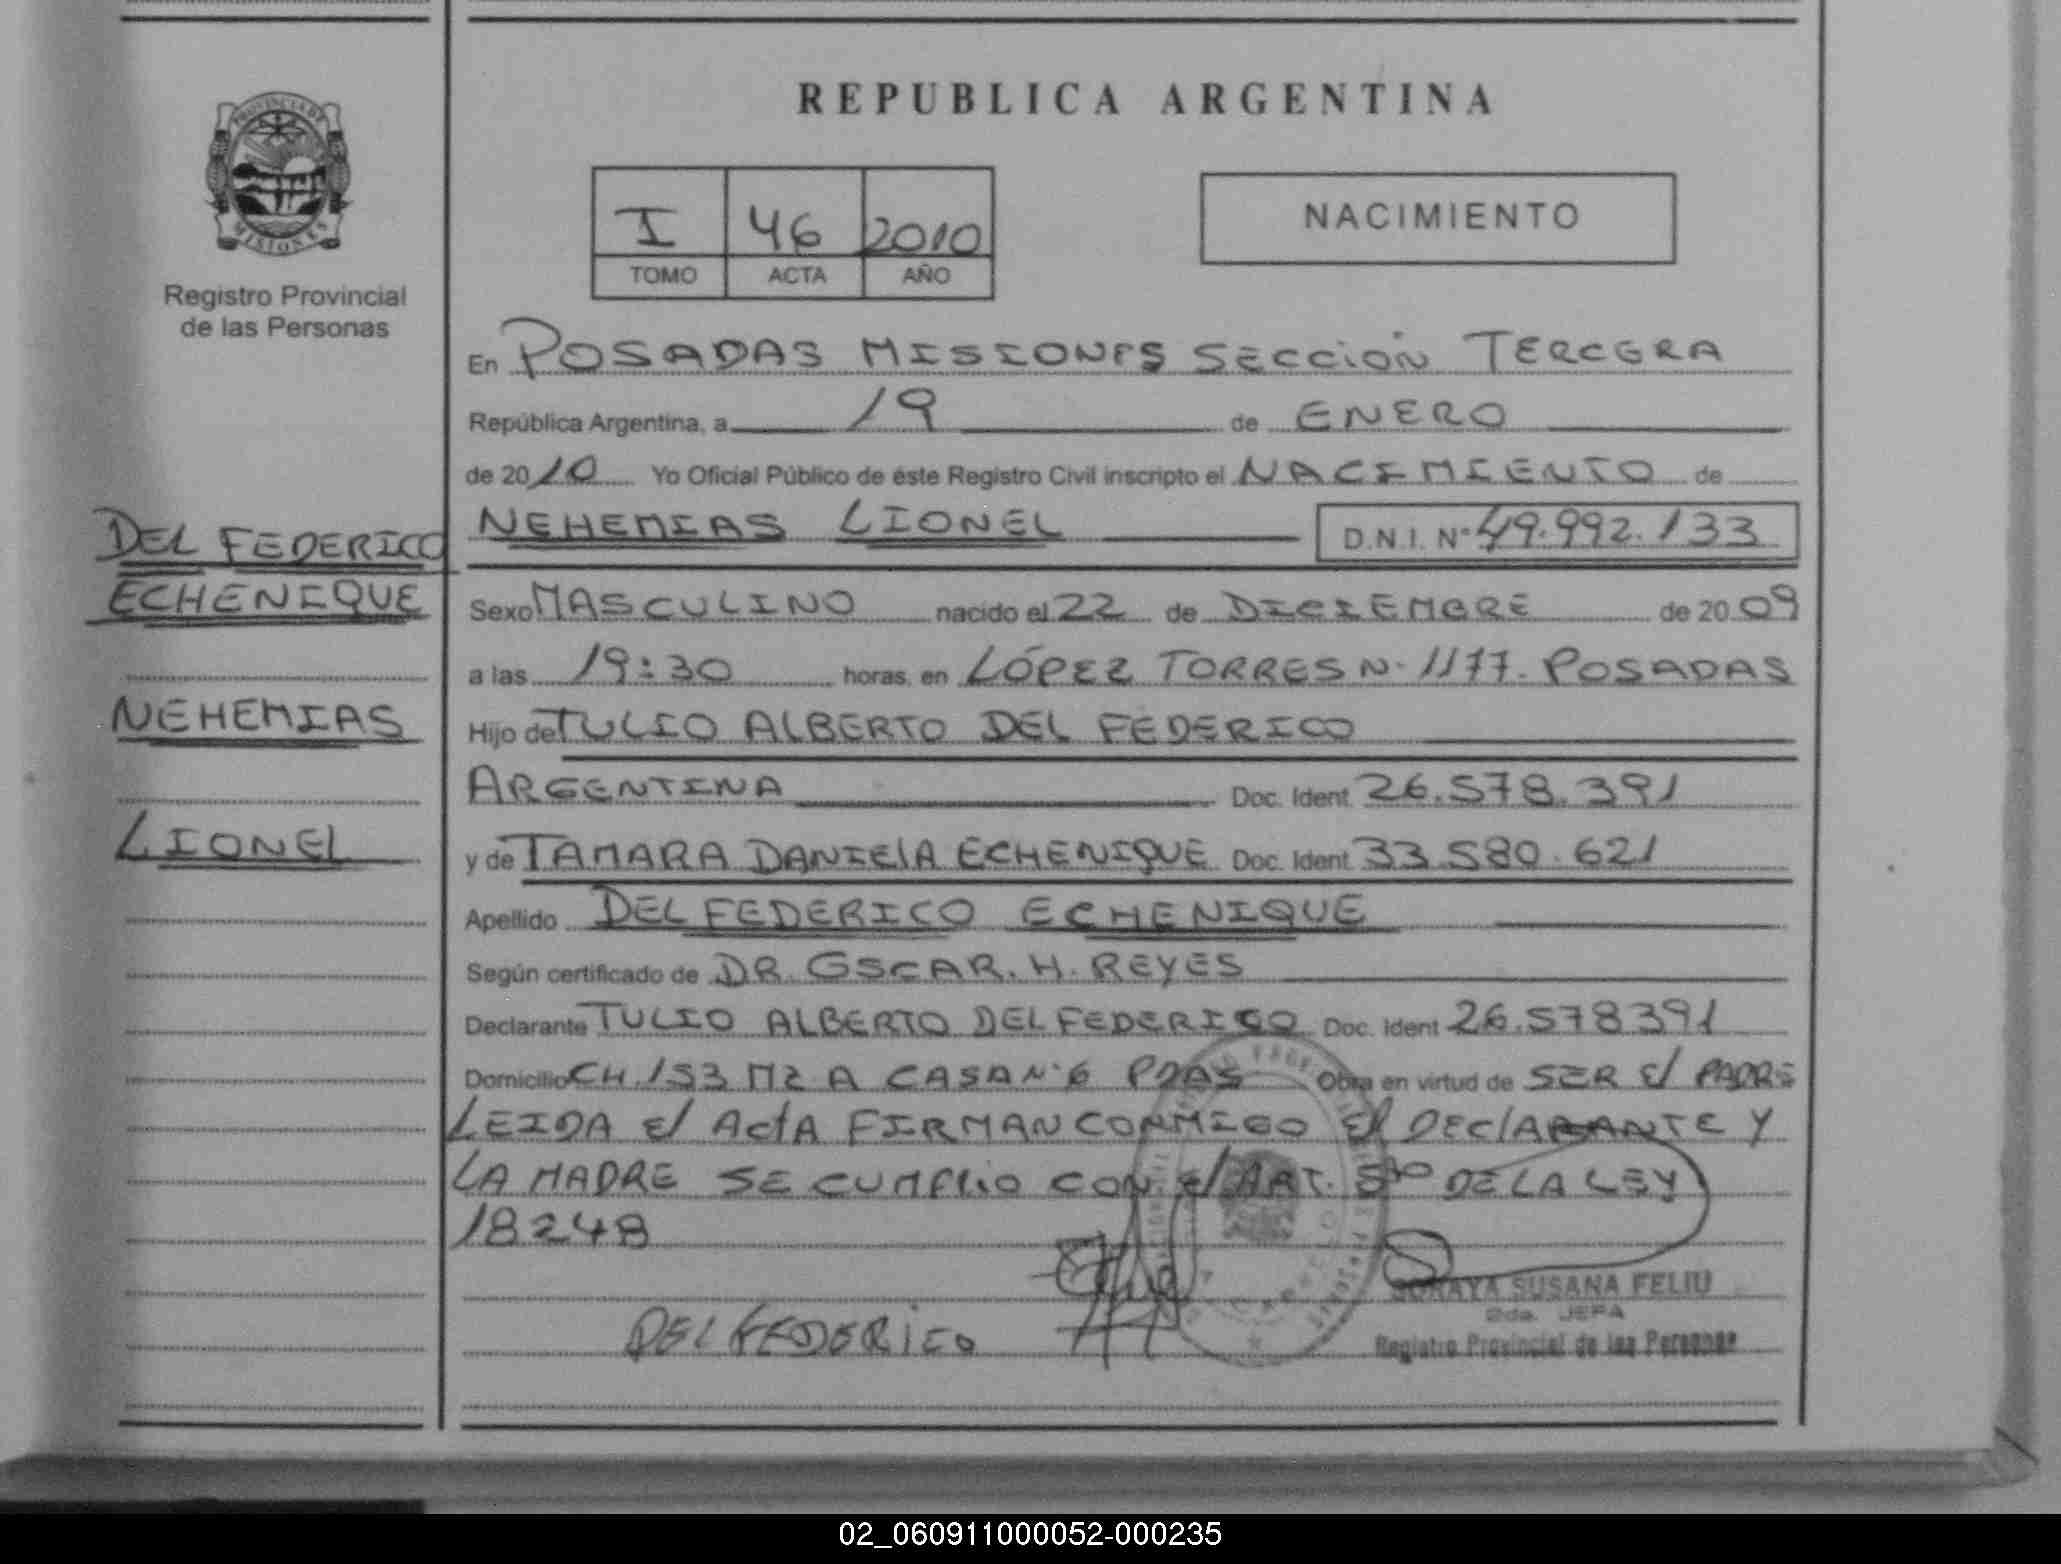 REPUBLICA ARGENTINA
PROVINCIA DE
MISIONES
Registro Provincial
de las Personas
I 46 2010
TOMO ACTA AÑO
NACIMIENTO
En POSADAS MISIONES SECCIÓN TERCERA
República Argentina, a 19 de ENERO
de 2010 Yo Oficial Público de éste Registro Civil inscripto el NACIMIENTO de
NEHEMIAS LIONEL D.N.I. Nº 49.992.133
DEL FEDERICO
ECHENIQUE
NEHEMIAS
LIONEL
Sexo MASCULINO nacido el 22 de DICIEMBRE de 2009
a las 19:30 horas, en LÓPEZ TORRES N· 1177. POSADAS
Hijo de TULIO ALBERTO DEL FEDERICO
ARGENTINA Doc. Ident. 26.578.391
y de TAMARA DANIElA ECHENIQUE Doc. Ident. 33.580.621
Apellido DEL FEDERICO ECHENIQUE
Según certificado de DR. OSCAR. H. REYES
Declarante TULIO ALBERTO DEL FEDERICO Doc. Ident 26.578391
Domicilio CH.153 MZ A CASA N·6 PDAS Obra en virtud de SER El PADRE
LEIDA El ActA FIRMAN CONMIGO El DEClARANTE Y
LA MADRE SE CUMPlio CON El ART. 5to DE LA LEY
18248
DEL FEDERICO
SORAYA SUSANA FELIU
2da. JEFA
Registro Provincial de las Personas
02_060911000052-000235